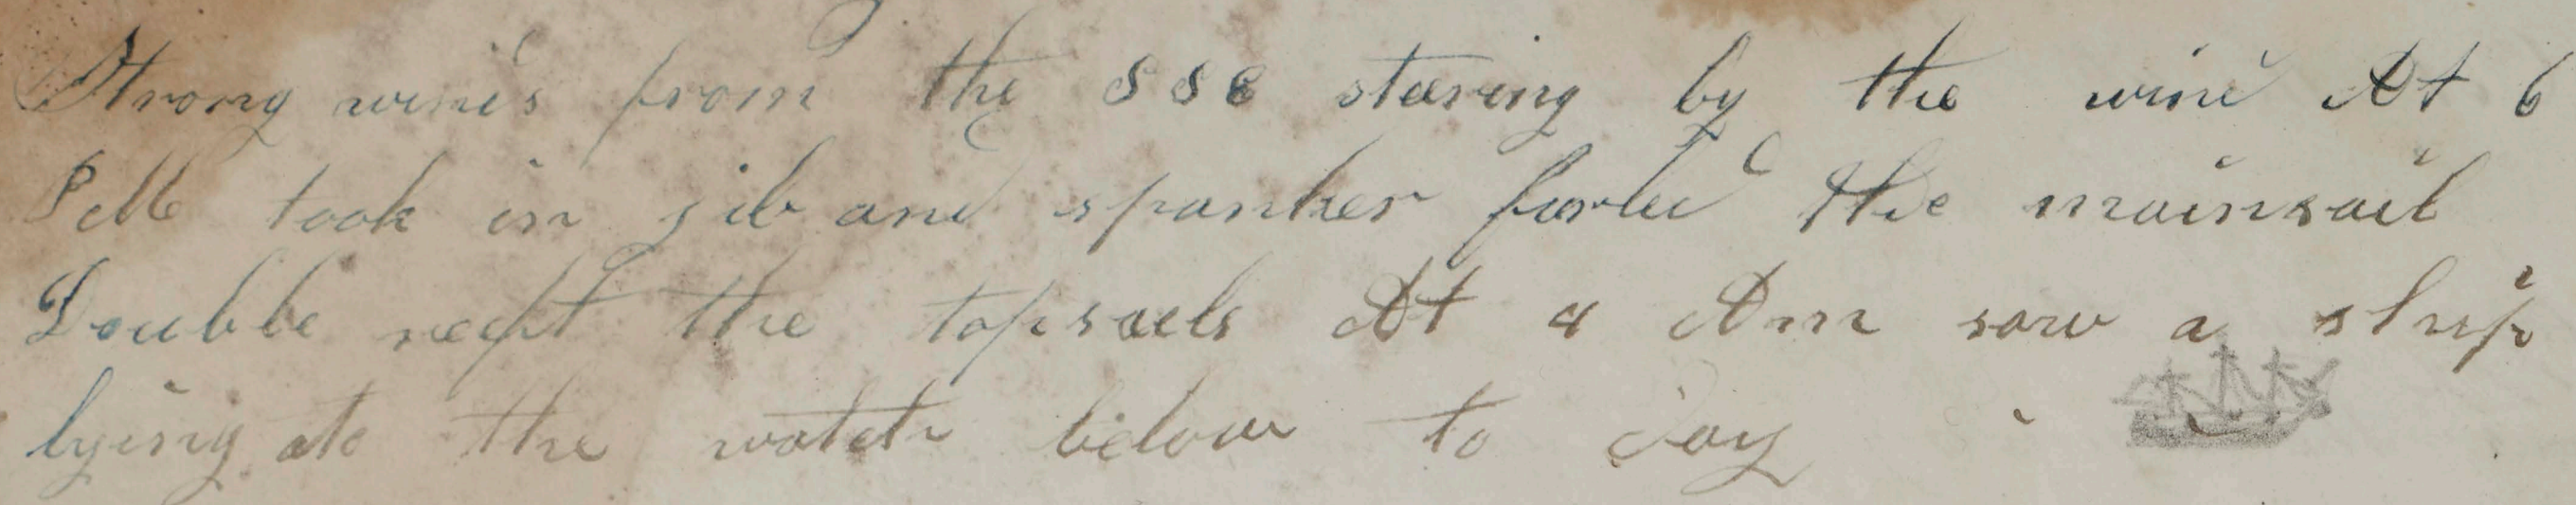 Strong winds from the SSE steering by the wind At 6
PM took in jib and spanker furled the mainsail
Double reeft the topsaels At 4 Am saw a ship
lying ato the watch below to day